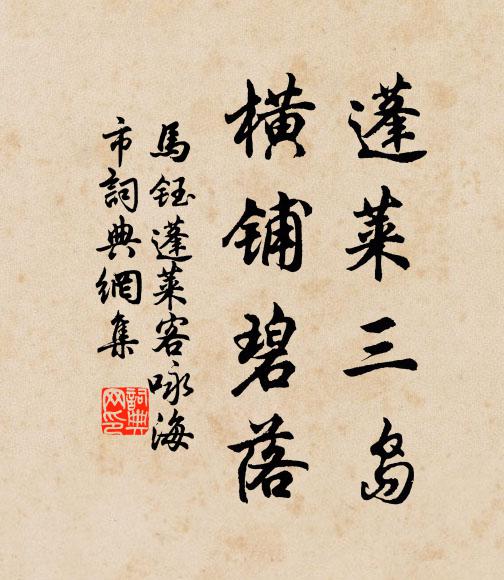 蓬莱三岛
横铺碧落
馬鈺蓬莱客咏海
市詞典網集
詞典
网印